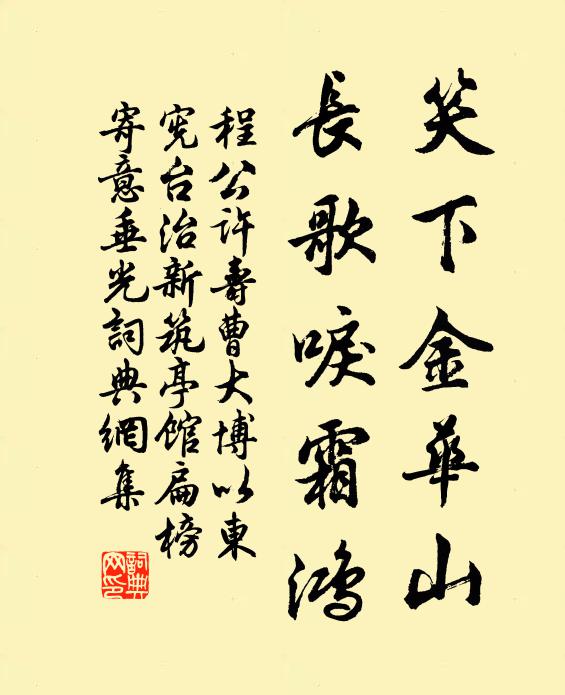 笑下金華山
長歌唳霜鴻
程公許壽曹大博以東
宪台治新筑亭館扁榜
寄意垂光詞典網集
詞典网印